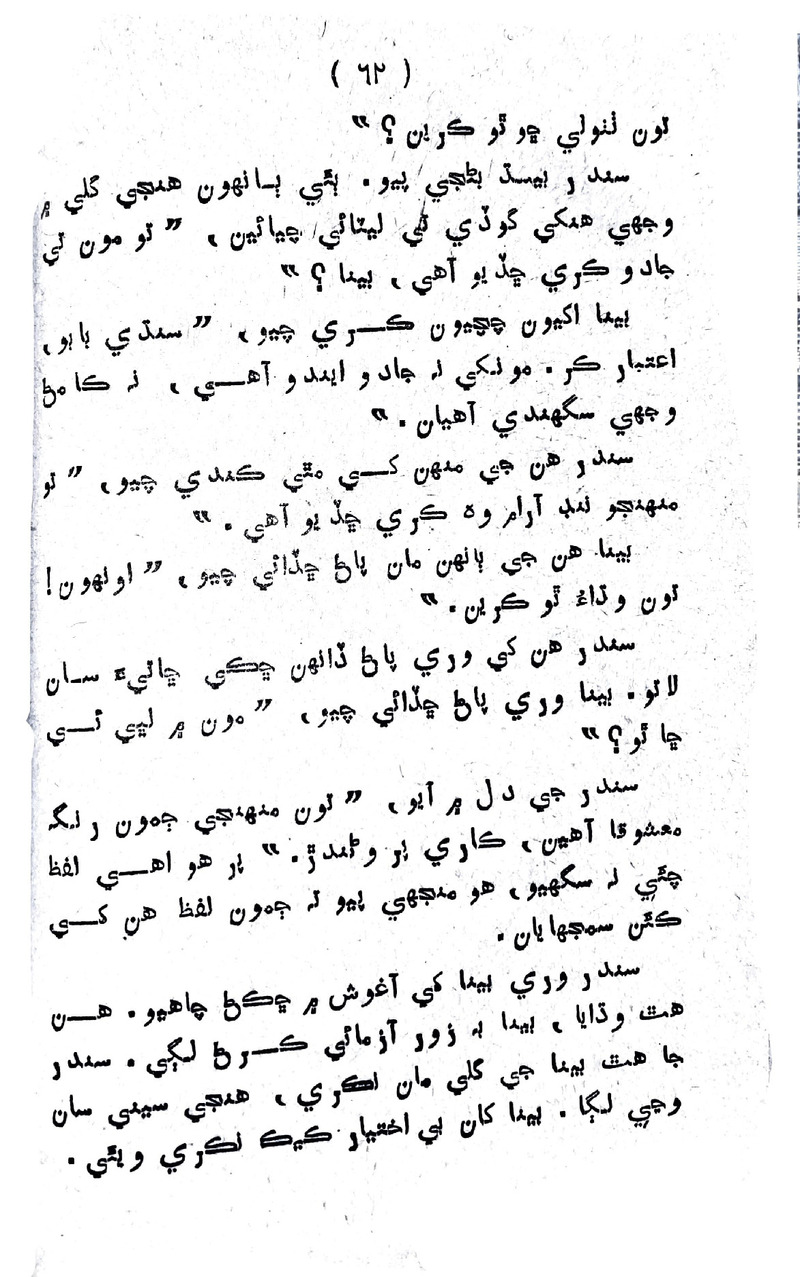 ( ٦٢ )
تون ٺٺولي ڇو ٿو ڪرين؟ “
سندر بيسڌ بڻجي پيو. ٻئي ٻانهون هنجي ڳلي ۾
وجهي هنکي گوڏي تي ليٽائي چيائين، ” تو مون تي
جادو ڪري ڇڏيو آهي، بينا ؟ “
بينا اکيون چچيون ڪري چيو، ” سنڌي بابو،
اعتبار ڪر. مونکي نہ جادو ايندو آهي، نہ ڪامڻ
وجهي سگهندي آهيان. “
سندر هن جي منهن کي مٿي ڪندي چيو، ” تو
منهنجو ننڊ آرام وه ڪري ڇڏيو آهي. “
بينا هن جي ٻانهن مان پاڻ ڇڏائي چيو، ” اونهون!
تون وڌاءُ ٿو ڪرين. “
سندر هن کي وري پاڻ ڏانهن ڇڪي ڇاتيءَ سان
لاتو. بينا وري پاڻ ڇڏائي چيو، ” مون ۾ لڀي ٿي
ڇا ٿو؟ “
سندر جي دل ۾ آيو، ” تون منهنجي ڄمون رنگ
معشوقا آهين، ڪاري پر وڻندڙ. “ پر هو اهي لفظ
چئي نہ سگهيو، هو منجهي پيو تہ ڄمون لفظ هن کي
ڪئن سمجهايان.
سندر وري بينا کي آغوش ۾ ڇڪڻ چاهيو. هن
هٿ وڌايا، بينا بہ زور آزمائي ڪرڻ لڳي. سندر
جا هٿ بينا جي ڳلي مان نڪري، هنجي سيني سان
وڃي لڳا. بينا کان بي اختيار ڪيڪ نڪري ويئي.